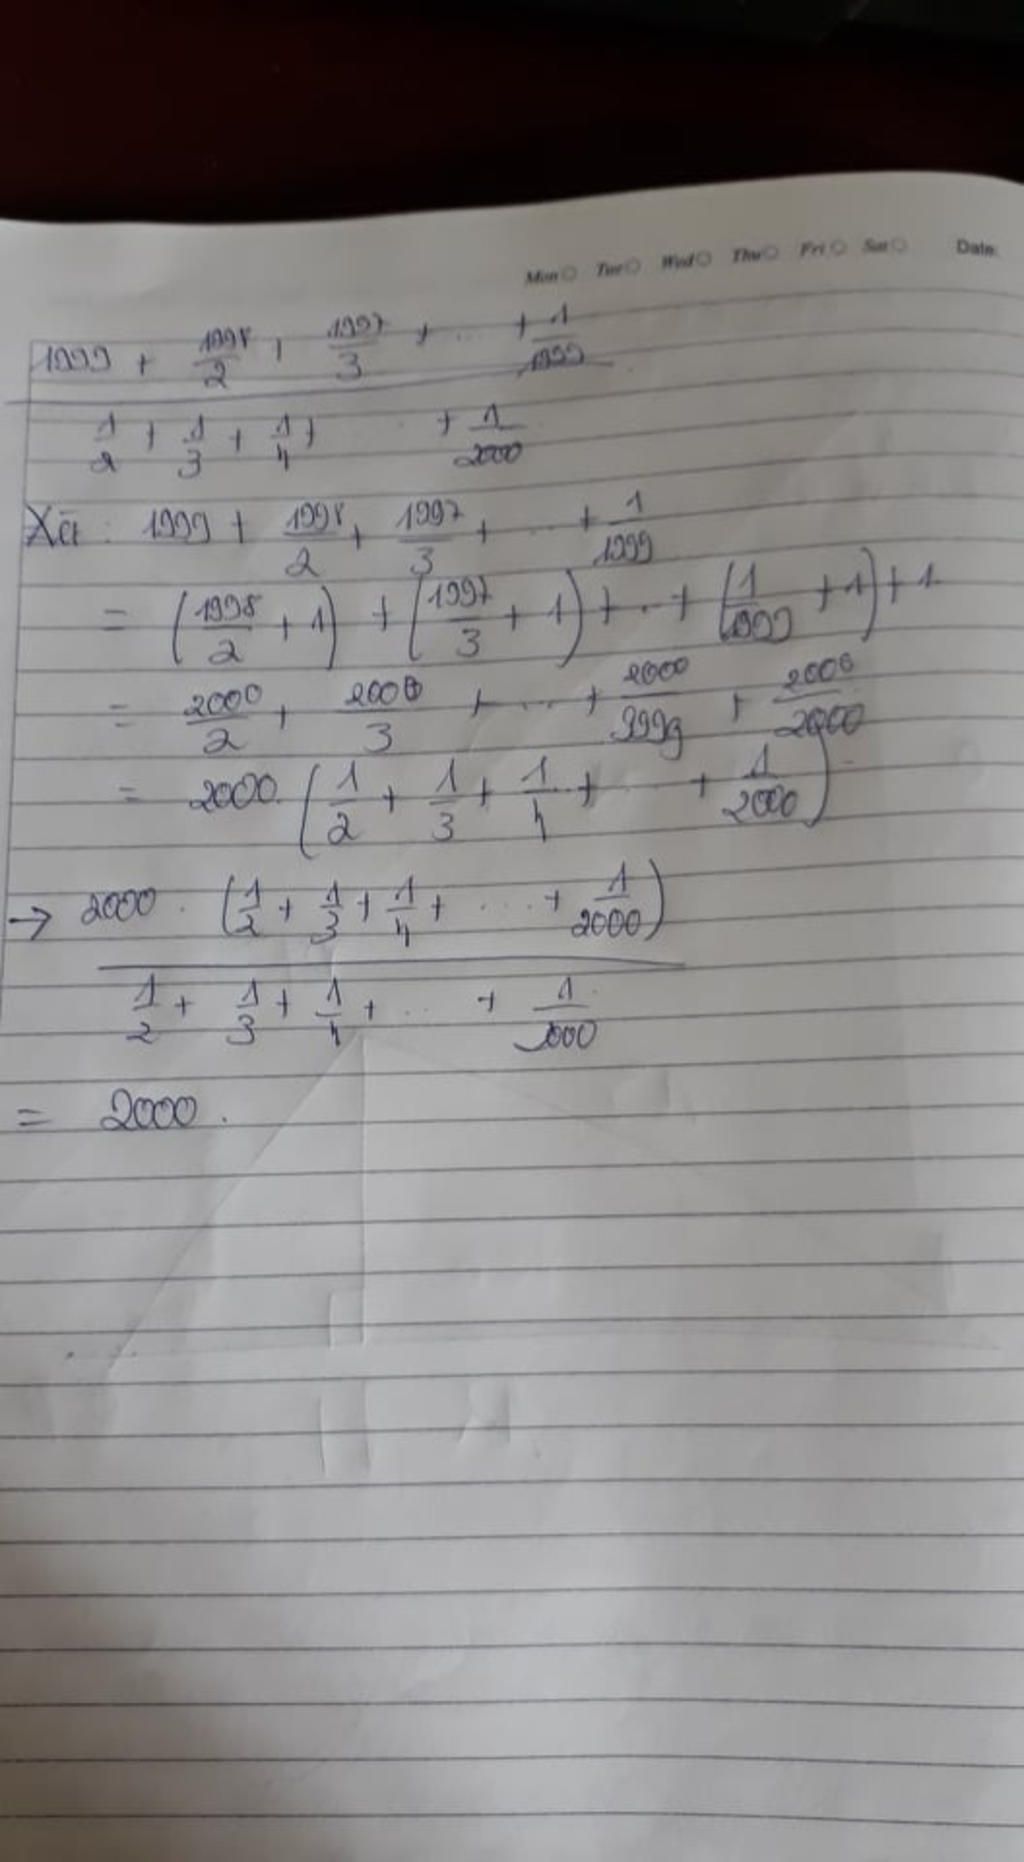 Mon Tue Wed Thu Fri Sat Date:
1999 + 1998/2 + 1997/3 + ... + 1/1999
1/2 + 1/3 + 1/4 + ... + 1/2000
Xét: 1999 + 1998/2 + 1997/3 + ... + 1/1999
= (1998/2 + 1) + (1997/3 + 1) + ... + (1/1999 + 1) + 1
= 2000/2 + 2000/3 + ... + 2000/1999 + 2000/2000
= 2000. (1/2 + 1/3 + 1/4 + ... + 1/2000).
→ 2000 . (1/2 + 1/3 + 1/4 + ... + 1/2000)
1/2 + 1/3 + 1/4 + ... + 1/2000
= 2000.